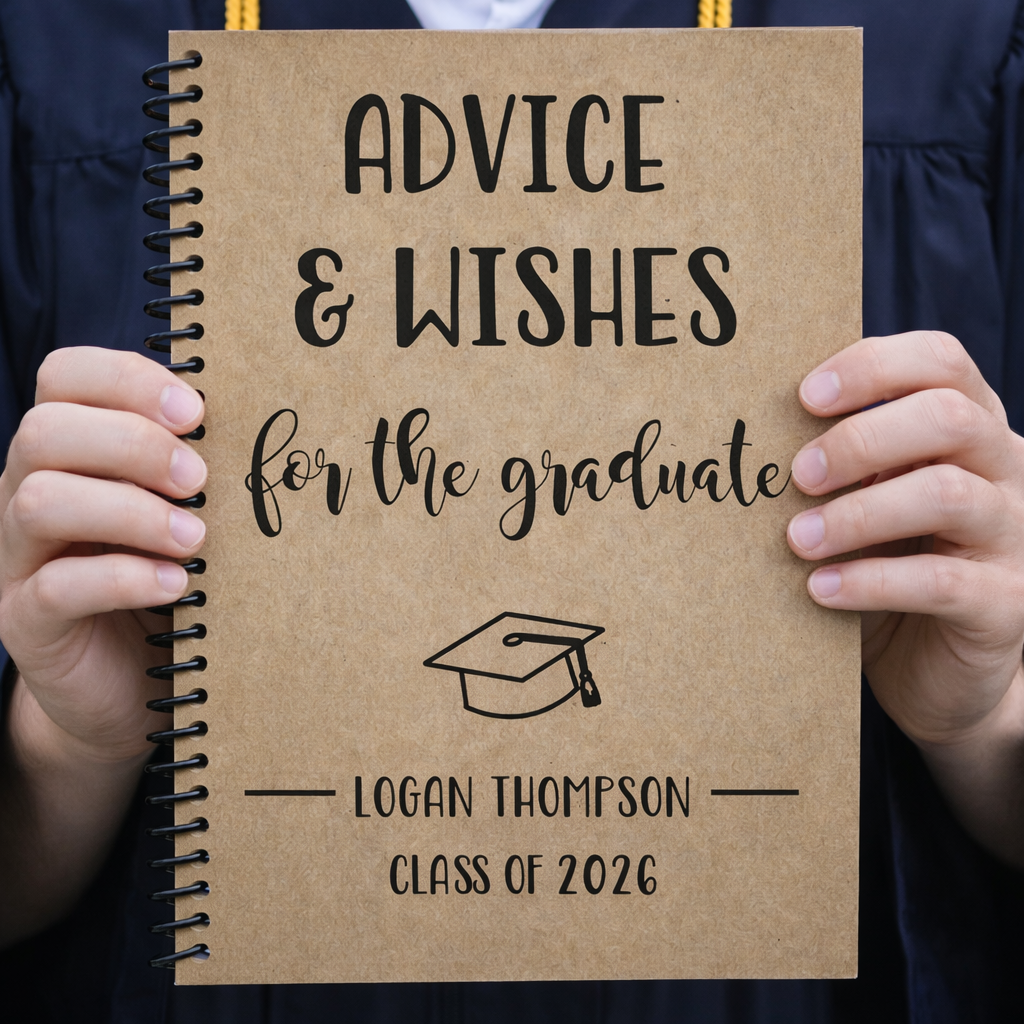 ADVICE
& WISHES
for the graduate
LOGAN THOMPSON
CLASS OF 2026